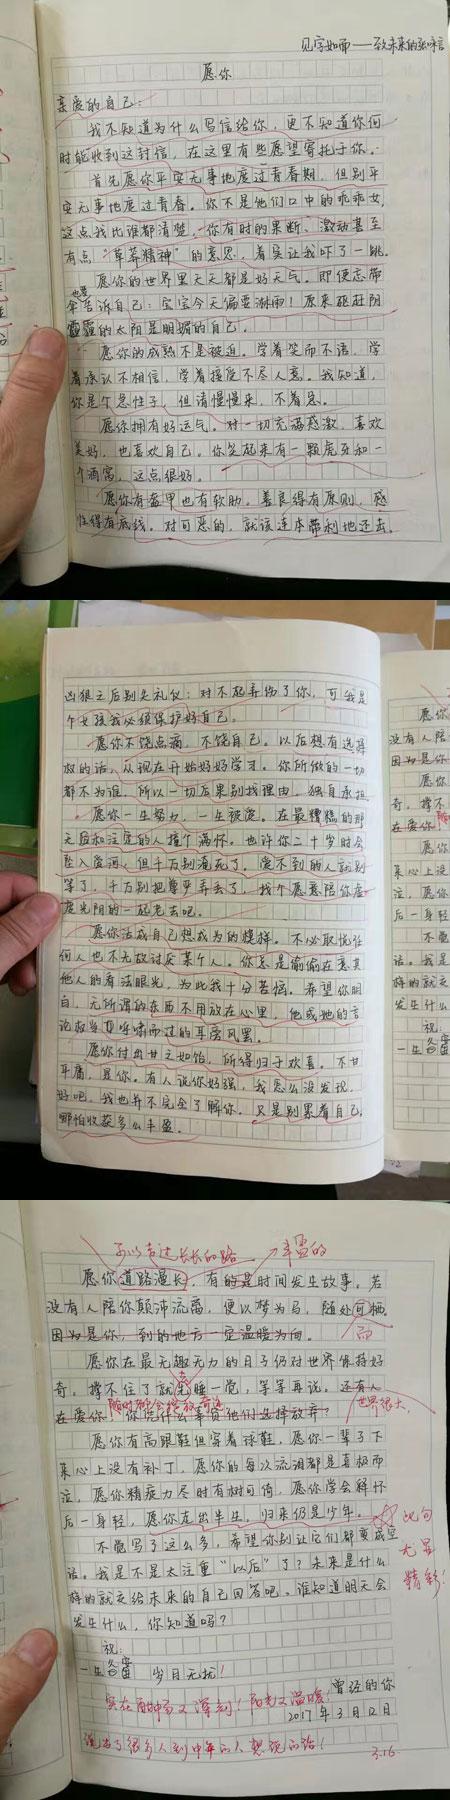 见字如面——致未来的张咪言
愿你
亲爱的自己：
我不知道为什么写信给你，更不知道你何
时能收到这封信，在这里有些愿望寄托于你。
首先愿你平安无事地度过青春期，但别平
安无事地度过青春。你不是他们口中的乖乖女，
这点我比谁都清楚。你有时的果断、激动甚至
有点“草莽精神”的意思，着实让我吓了一跳。
愿你的世界里天天都是好天气。即使忘带
伞也要告诉自己：宝宝今天偏要淋雨！原来驱赶阴
霾的太阳是明媚的自己。
愿你的成熟不是被迫。学着笑而不语，学
着承认不相信，学着接受不尽人意。我知道，
你是个急性子，但请慢慢来，不着急。
愿你拥有好运气。对一切充满感激，喜欢
美好，也喜欢自己。你笑起来有一颗虎牙和一
个酒窝，这点很好。
愿你有盔甲也有软肋。善良得有原则，感
性得有底线。对可恶的，就该连本带利地还击。
凶狠之后别失礼仪：对不起弄伤了你，可我是
个女孩我必须保护好自己。
愿你不饶点滴，不饶自己。以后想有选择
权的话，从现在开始好好学习。你所做的一切
都不为谁，所以一切后果别找理由，独自承担。
愿你一生努力，一生被爱。在最糟糕的那
天后和注定的人撞个满怀。也许你二十岁时会
坠入爱河，但千万别淹死了。爱不到的人就别
等了，千万别把尊严弄丢了，找个愿意陪你虚
度光阴的一起老去吧。
愿你活成自己想成为的模样。不必取悦任
何人也不无故讨厌某个人。你总是偷偷在意其
他人的看法眼光，为此我十分苦恼。希望你明
白，无所谓的东西不用放在心里，他或她的言
论权当是呼啸而过的耳旁风罢。
愿你付出甘之如饴，所得归于欢喜。不甘
平庸，是你。有人说你好强，我怎么没发现。
好吧，我也并不完全了解你。只是别累着自己，
哪怕收获多么丰盈。
可以走过长长的路
丰盈的
愿你道路漫长，有的是时间发生故事。若
没有人陪你颠沛流离，便以梦为马，随处可栖。
因为是你，到的地方一定温暖为向。
而
愿你在最无趣无力的日子仍对世界保持好
奇。撑不住了就先睡一觉，等等再说。还有人
去
随时都会绽放奇迹
世界很大，
在爱你，你凭什么辜负他们选择放弃？
愿你有高跟鞋但穿着球鞋，愿你一辈子下
来心上没有补丁，愿你的每次流泪都是喜极而
泣，愿你精疲力尽时有树可倚，愿你学会释怀
后一身轻，愿你走出半生，归来仍是少年。
此句
尤显
精彩！
不觉写了这么多，希望你别让它们都变成空
话。我是不是太注重“以后”了？未来是什么
样的就交给未来的自己回答吧。谁知道明天会
发生什么，你知道吗？
祝：
一生备蜜 岁月无扰！
曾经的你
2017年3月12日
实在酣畅又深刻！阳光又温暖！
说出了很多人到中年的人想说的话！
3.16